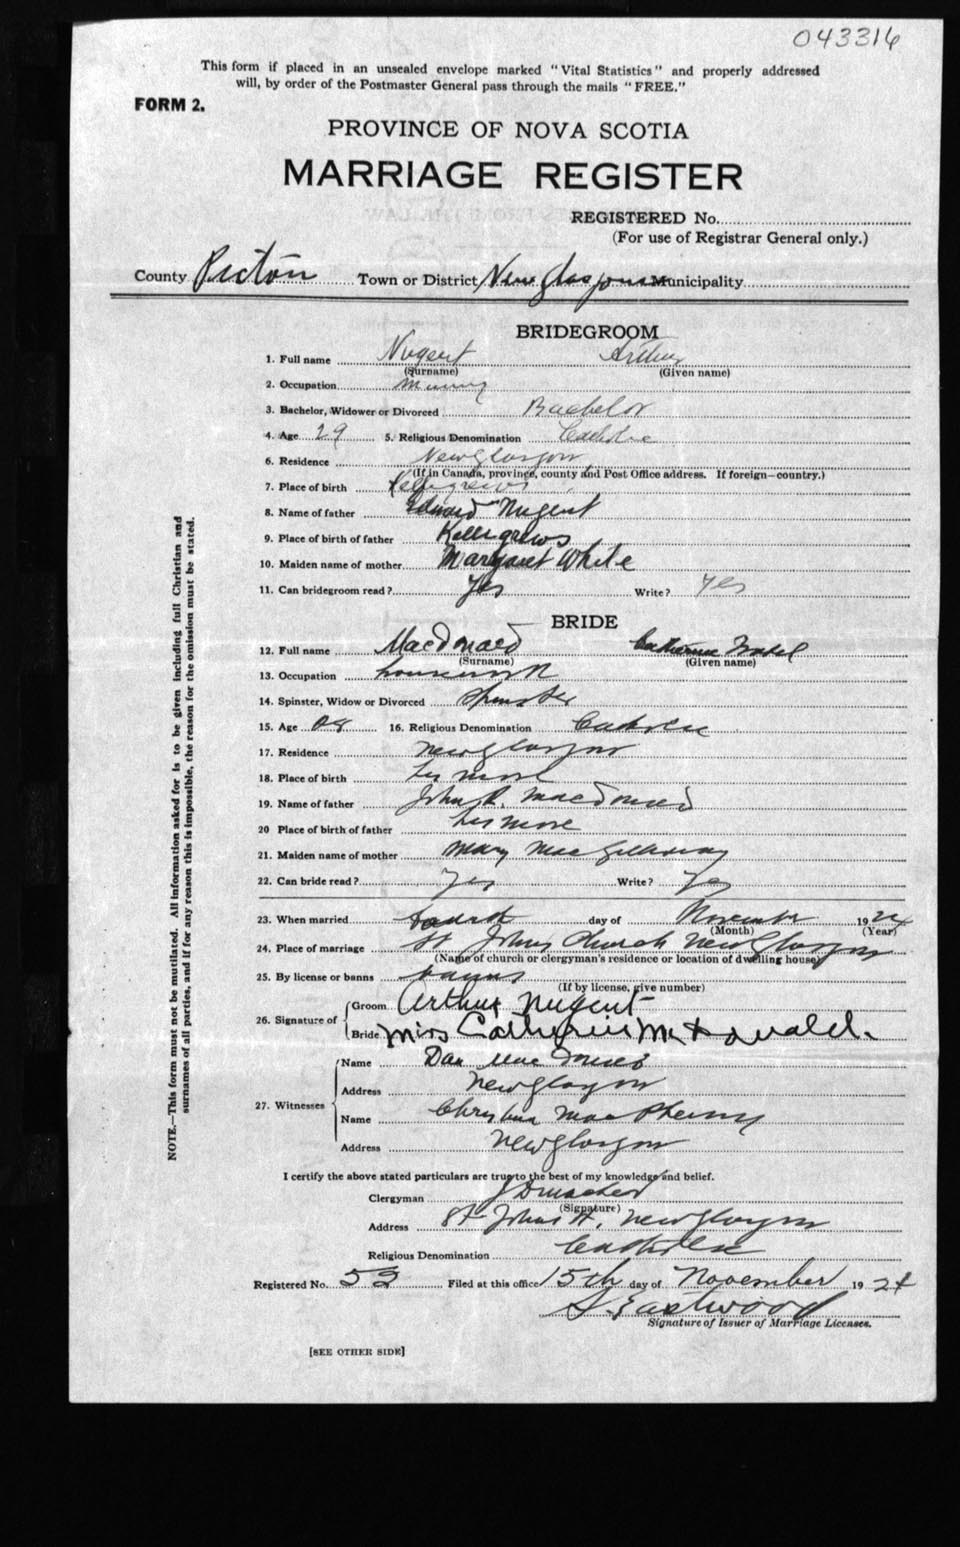 043316
This form if placed in an unsealed envelope marked "Vital Statistics" and properly addressed
will, by order of the Postmaster General pass through the mails "FREE."
FORM 2.
PROVINCE OF NOVA SCOTIA
MARRIAGE REGISTER
REGISTERED No.
(For use of Registrar General only.)
County Pictou Town or District New Glasgow Municipality
BRIDEGROOM
1. Full name Nugent Arthur
(Surname) (Given name)
2. Occupation
3. Bachelor, Widower or Divorced Bachelor
4. Age 29 5. Religious Denomination Catholic
6. Residence New Glasgow
(If in Canada, province, county and Post Office address. If foreign—country.)
7. Place of birth Kelligrews
8. Name of father Edward Nugent
9. Place of birth of father Kelligrews
10. Maiden name of mother Margaret White
11. Can bridegroom read? Yes Write? Yes
BRIDE
12. Full name MacDonald Catherine Isabel
(Surname) (Given name)
13. Occupation housework
14. Spinster, Widow or Divorced Spinster
15. Age 28 16. Religious Denomination Catholic
17. Residence New Glasgow
18. Place of birth Lismore
19. Name of father John R. MacDonald
20 Place of birth of father Lismore
21. Maiden name of mother Mary MacGillivray
22. Can bride read? Yes Write? Yes
23. When married fourth day of November 1924
(Month) (Year)
24. Place of marriage St Johns Church New Glasgow
(Name of church or clergyman's residence or location of dwelling house)
25. By license or banns banns
(If by license, give number)
26. Signature of Groom Arthur Nugent
Bride Miss Catherine McDonald.
27. Witnesses Name Dan MacDonald
Address New Glasgow
Name MacPherson
Address New Glasgow
I certify the above stated particulars are true to the best of my knowledge and belief.
Clergyman
(Signature)
Address St Johns New Glasgow
Religious Denomination Catholic
Registered No. 53 Filed at this office 15th day of November 1924
S. Eastwood
Signature of Issuer of Marriage Licenses.
[SEE OTHER SIDE]
NOTE.—This form must not be mutilated. All information asked for is to be given including full Christian and
surnames of all parties, and if for any reason this is impossible, the reason for the omission must be stated.